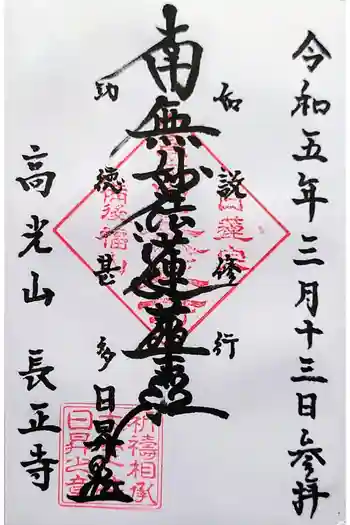 令和五年三月十三日参拝
如説修行
南無妙法蓮華経
功徳甚多
日昇
高光山 長正寺
備後福山
祈祷相承
日昇上竟